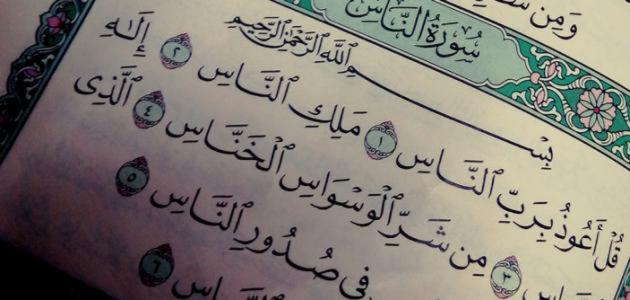 وَمِن
سُورَةُ النَّاسِ
بِسْمِ ٱللَّهِ ٱلرَّحْمَٰنِ ٱلرَّحِيمِ
قُلْ أَعُوذُ بِرَبِّ ٱلنَّاسِ ١ مَلِكِ ٱلنَّاسِ ٢ إِلَٰهِ
٣ مِن شَرِّ ٱلْوَسْوَاسِ ٱلْخَنَّاسِ ٤ ٱلَّذِى
فِى صُدُورِ ٱلنَّاسِ ٥
٦